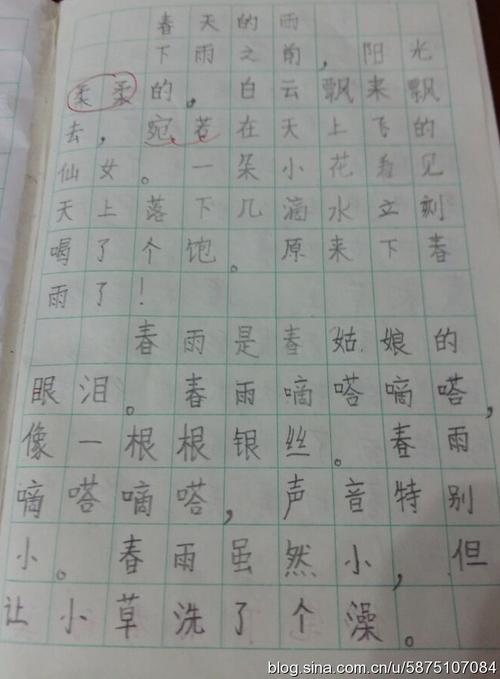 春天的雨
下雨之前，阳光
柔柔的。白云飘来飘
去，宛若在天上飞的
仙女。一朵小花看见
天上落下几滴水立刻
喝了个饱。原来下春
雨了！
春雨是春姑娘的
眼泪。春雨嘀嗒嘀嗒，
像一根根银丝。春雨
嘀嗒嘀嗒，声音特别
小。春雨虽然小，但
让小草洗了个澡。
blog.sina.com.cn/u/5875107084